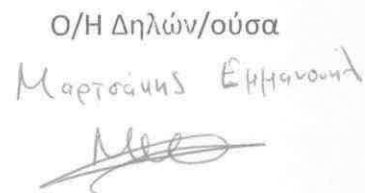 Ο/Η Δηλών/ούσα
Μαρτσάκης Εμμανουήλ